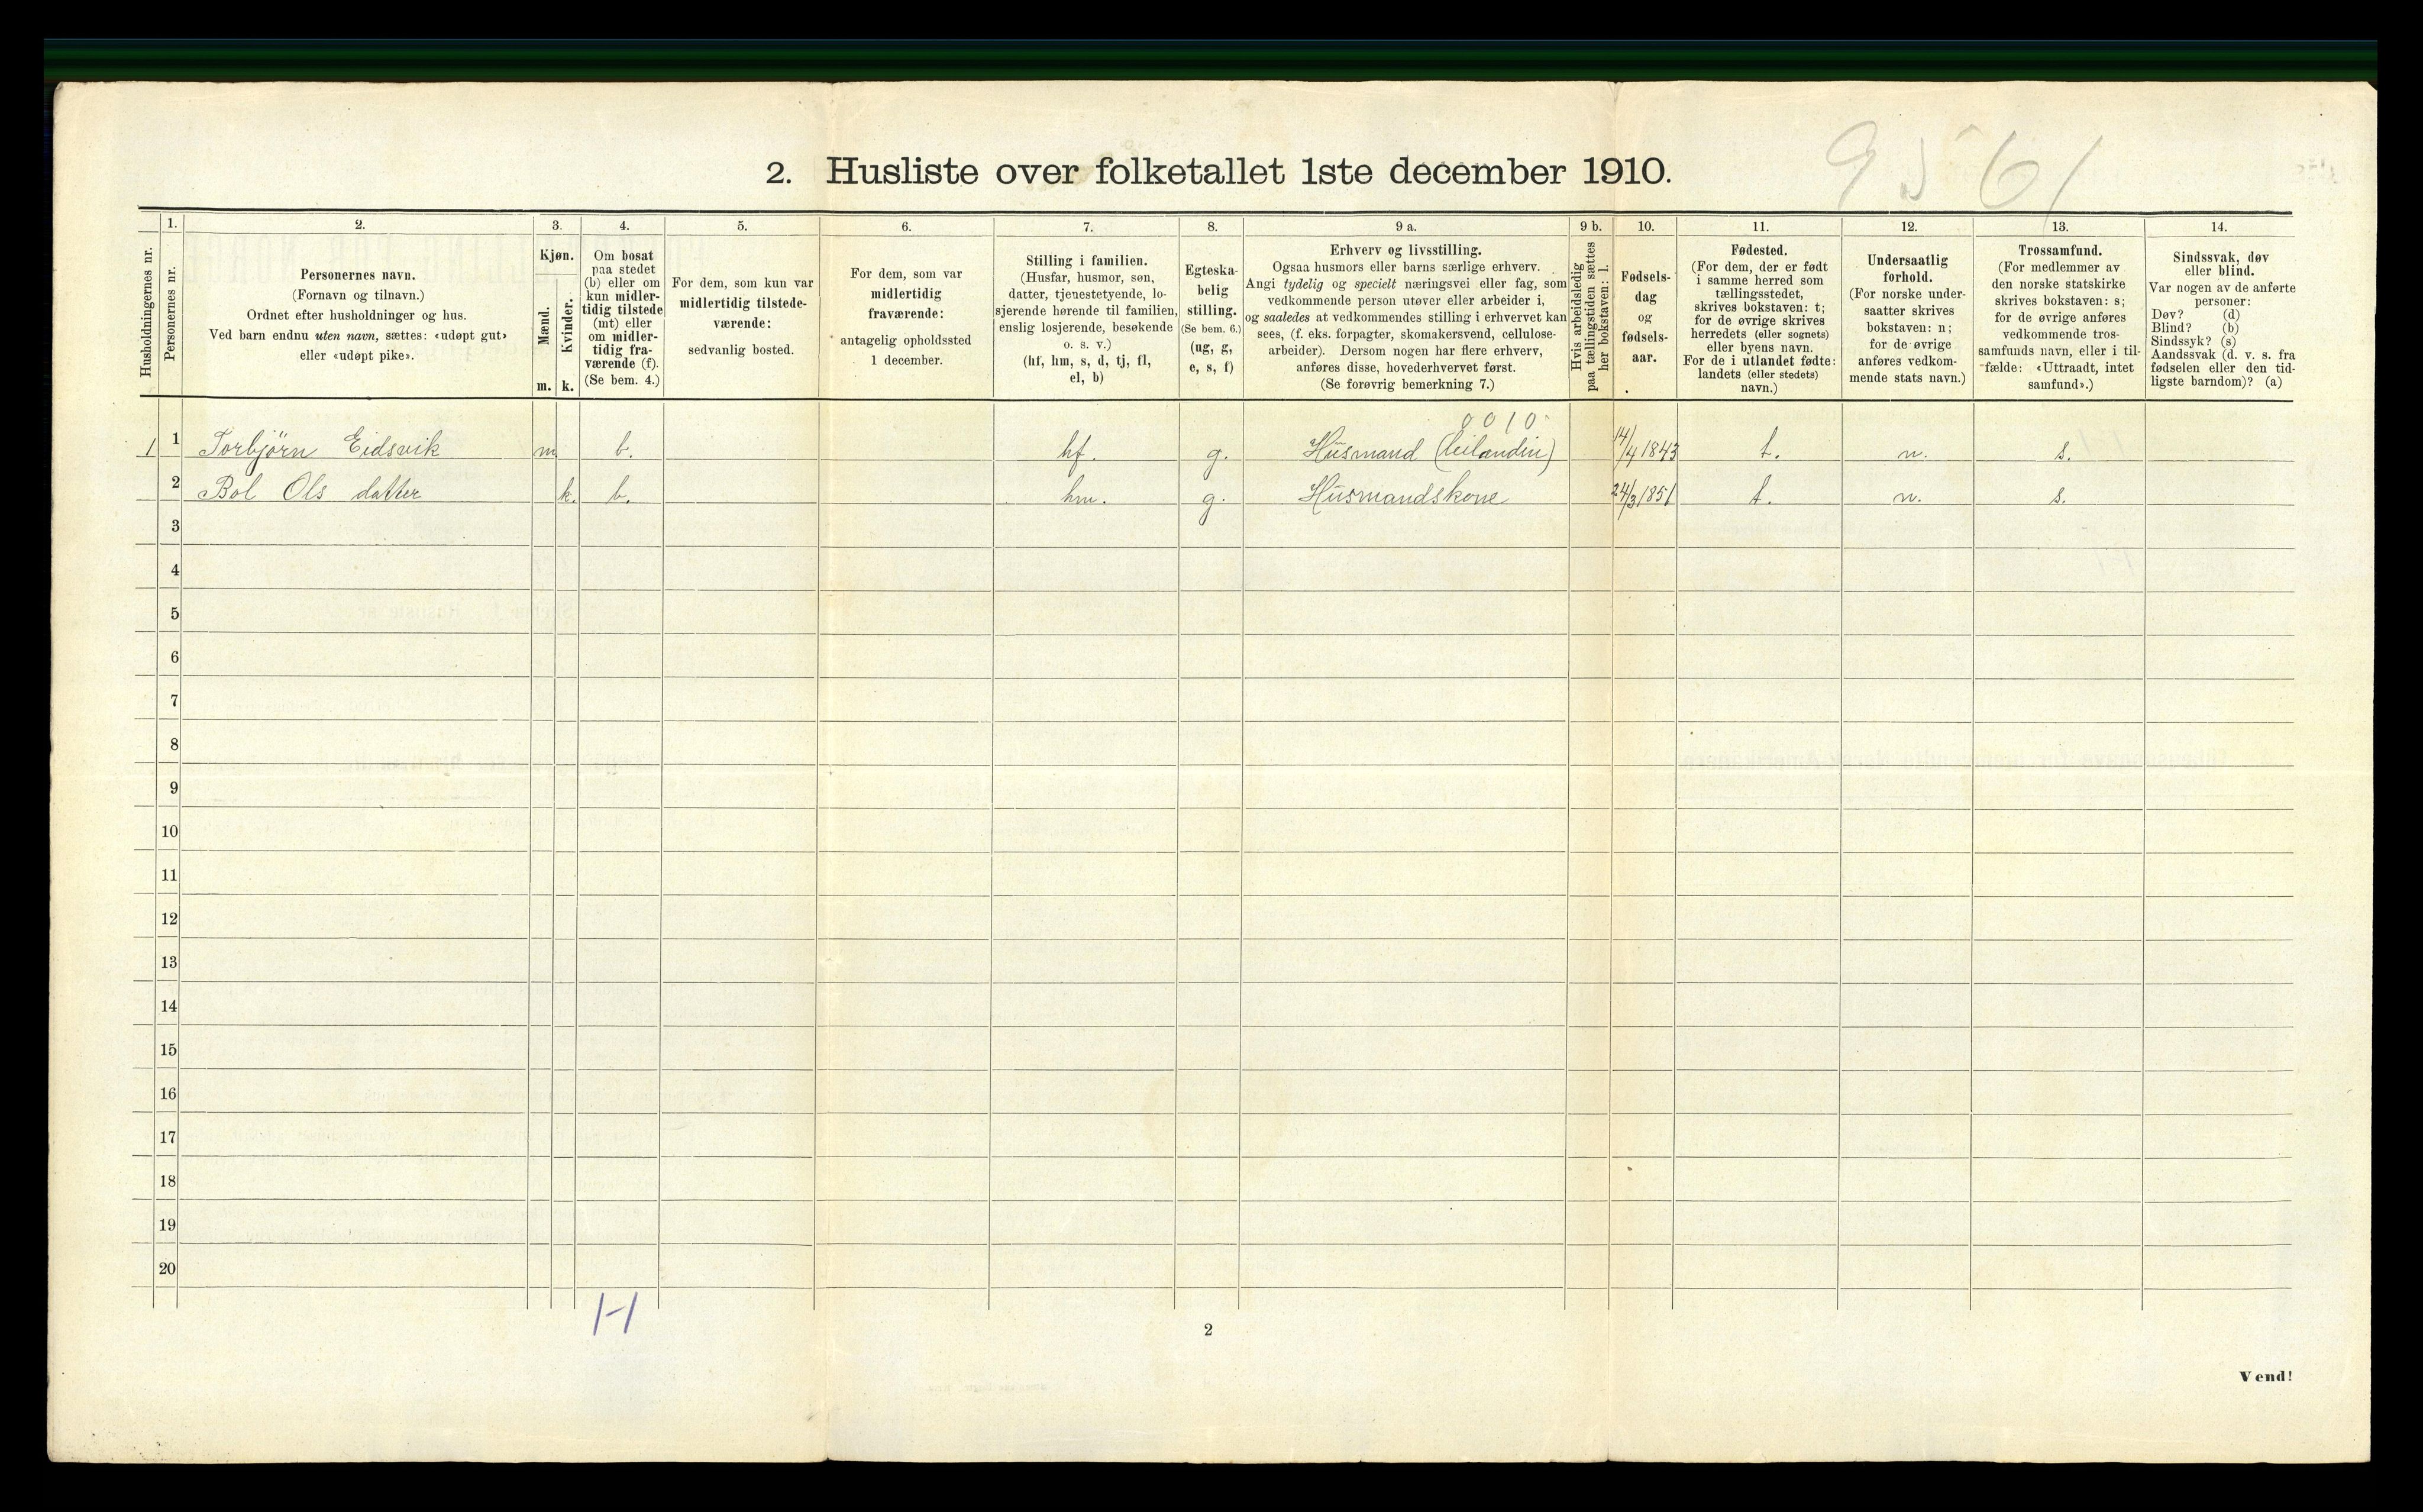 9561
2. Husliste over folketallet 1ste december 1910.
Husholdningernes nr.
1.
Personernes nr.
2.
Personernes navn.
(Fornavn og tilnavn.)
Ordnet efter husholdninger og hus.
Ved barn endnu uten navn, sættes: «udøpt gut»
eller «udøpt pike».
3.
Kjøn.
Mænd.
m.
Kvinder.
k.
4.
Om bosat
paa stedet
(b) eller om
kun midler-
tidig tilstede
(mt) eller
om midler-
tidig fra-
værende (f).
(Se bem. 4.)
5.
For dem, som kun var
midlertidig tilstede-
værende:
sedvanlig bosted.
6.
For dem, som var
midlertidig
fraværende:
antagelig opholdssted
1 december.
7.
Stilling i familien.
(Husfar, husmor, søn,
datter, tjenestetyende, lo-
sjerende hørende til familien,
enslig losjerende, besøkende
o. s. v.)
(hf, hm, s, d, tj, fl,
el, b)
8.
Egteska-
belig
stilling.
(Se bem. 6.)
(ug, g,
e, s, f)
9 a.
Erhverv og livsstilling.
Ogsaa husmors eller barns særlige erhverv.
Angi tydelig og specielt næringsvei eller fag, som
vedkommende person utøver eller arbeider i,
og saaledes at vedkommendes stilling i erhvervet kan
sees, (f. eks. forpagter, skomakersvend, cellulose-
arbeider). Dersom nogen har flere erhverv,
anføres disse, hovederhvervet først.
(Se forøvrig bemerkning 7.)
9 b.
Hvis arbeidsledig
paa tællingstiden sættes
her bokstaven: l.
10.
Fødsels-
dag
og
fødsels-
aar.
11.
Fødested.
(For dem, der er født
i samme herred som
tællingsstedet,
skrives bokstaven: t;
for de øvrige skrives
herredets (eller sognets)
eller byens navn.
For de i utlandet fødte:
landets (eller stedets)
navn.)
12.
Undersaatlig
forhold.
(For norske under-
saatter skrives
bokstaven: n;
for de øvrige
anføres vedkom-
mende stats navn.)
13.
Trossamfund.
(For medlemmer av
den norske statskirke
skrives bokstaven: s;
for de øvrige anføres
vedkommende tros-
samfunds navn, eller i til-
fælde: «Uttraadt, intet
samfund».)
14.
Sindssvak, døv
eller blind.
Var nogen av de anførte
personer:
Døv? (d)
Blind? (b)
Sindssyk? (s)
Aandssvak (d. v. s. fra
fødselen eller den tid-
ligste barndom)? (a)
0010
1 1 Torbjörn Eidsvik m b. hf. g. Husmand (leilændin) 14/4 1843 t. n. s.
2 Bol Ols datter k. b. hm. g. Husmandskone 24/3 1851 t. n. s.
3
4
5
6
7
8
9
10
11
12
13
14
15
16
17
18
19
20
1-1
2
Vend!